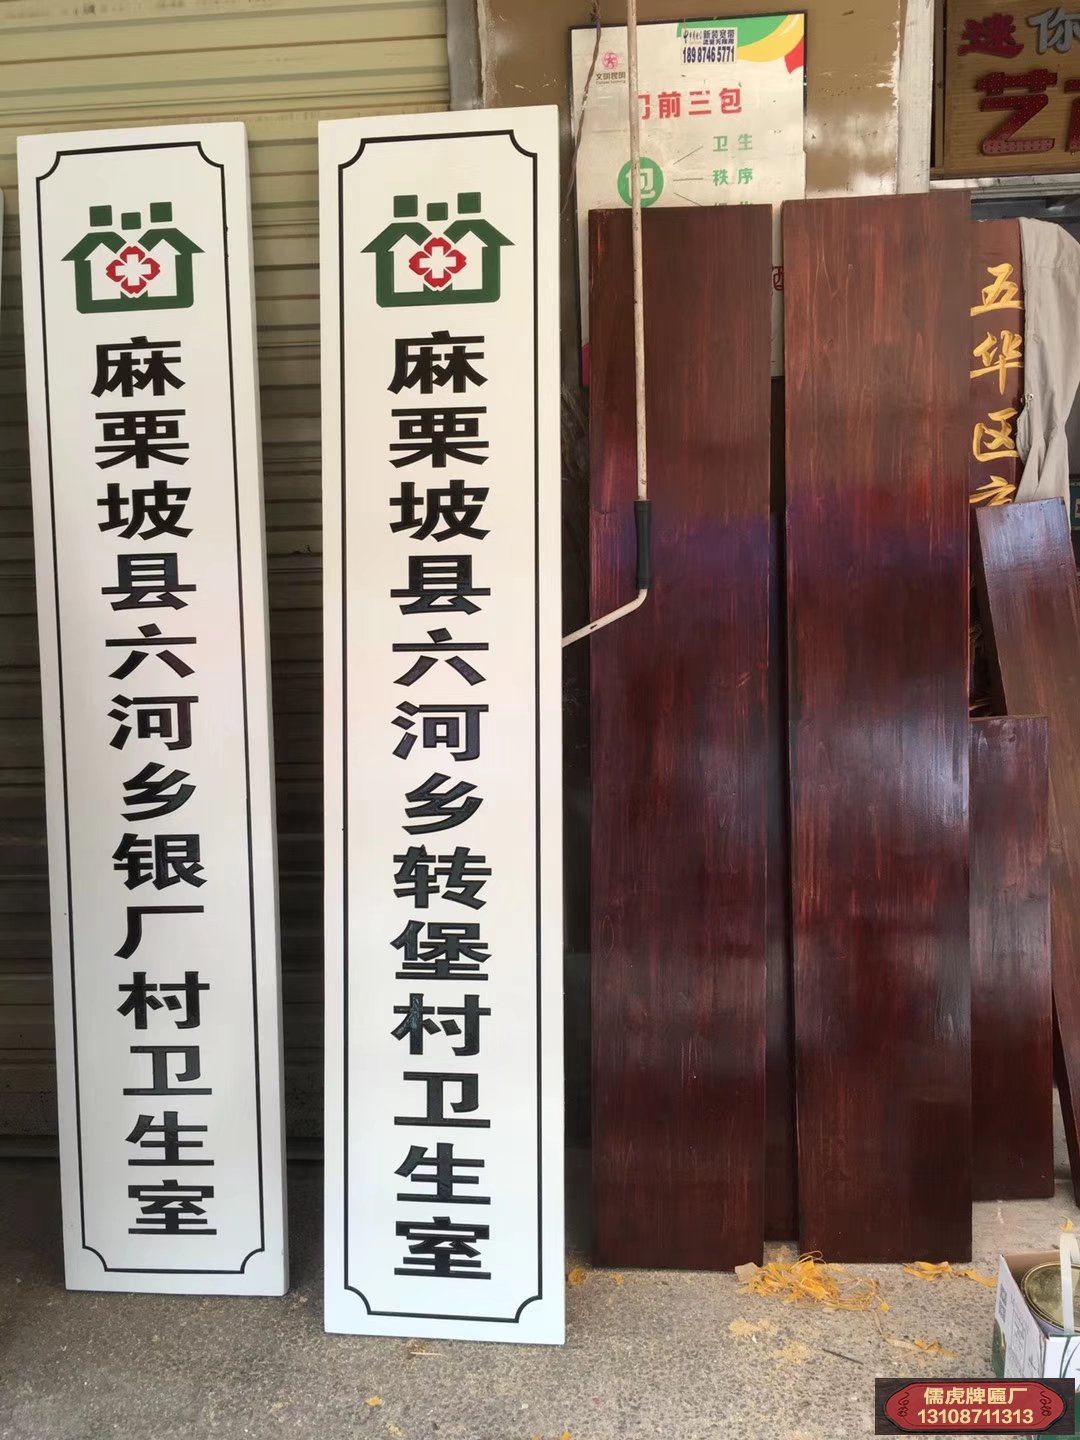 麻栗坡县六河乡银厂村卫生室
麻栗坡县六河乡转堡村卫生室
文明昆明
新装宽带
18987465771
门前三包
包
卫生
秩序
迷你
艺
五华区
儒虎牌匾厂
13108711313